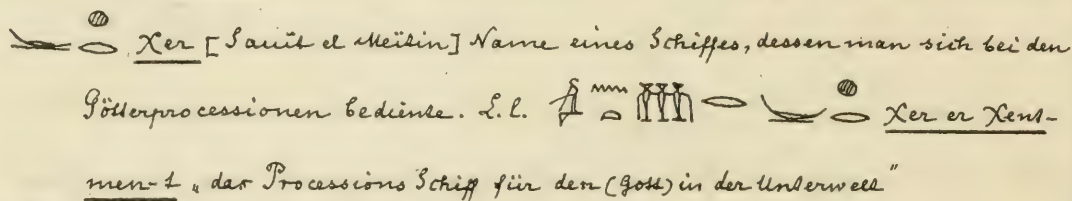 Xer [Sauït el Meïtin] Name eines Schiffes, dessen man sich bei den
Götterprocessionen bediente. L. l. Xer er Xent-
men-t „das Processions Schiff für den (Gott) in der Unterwelt"